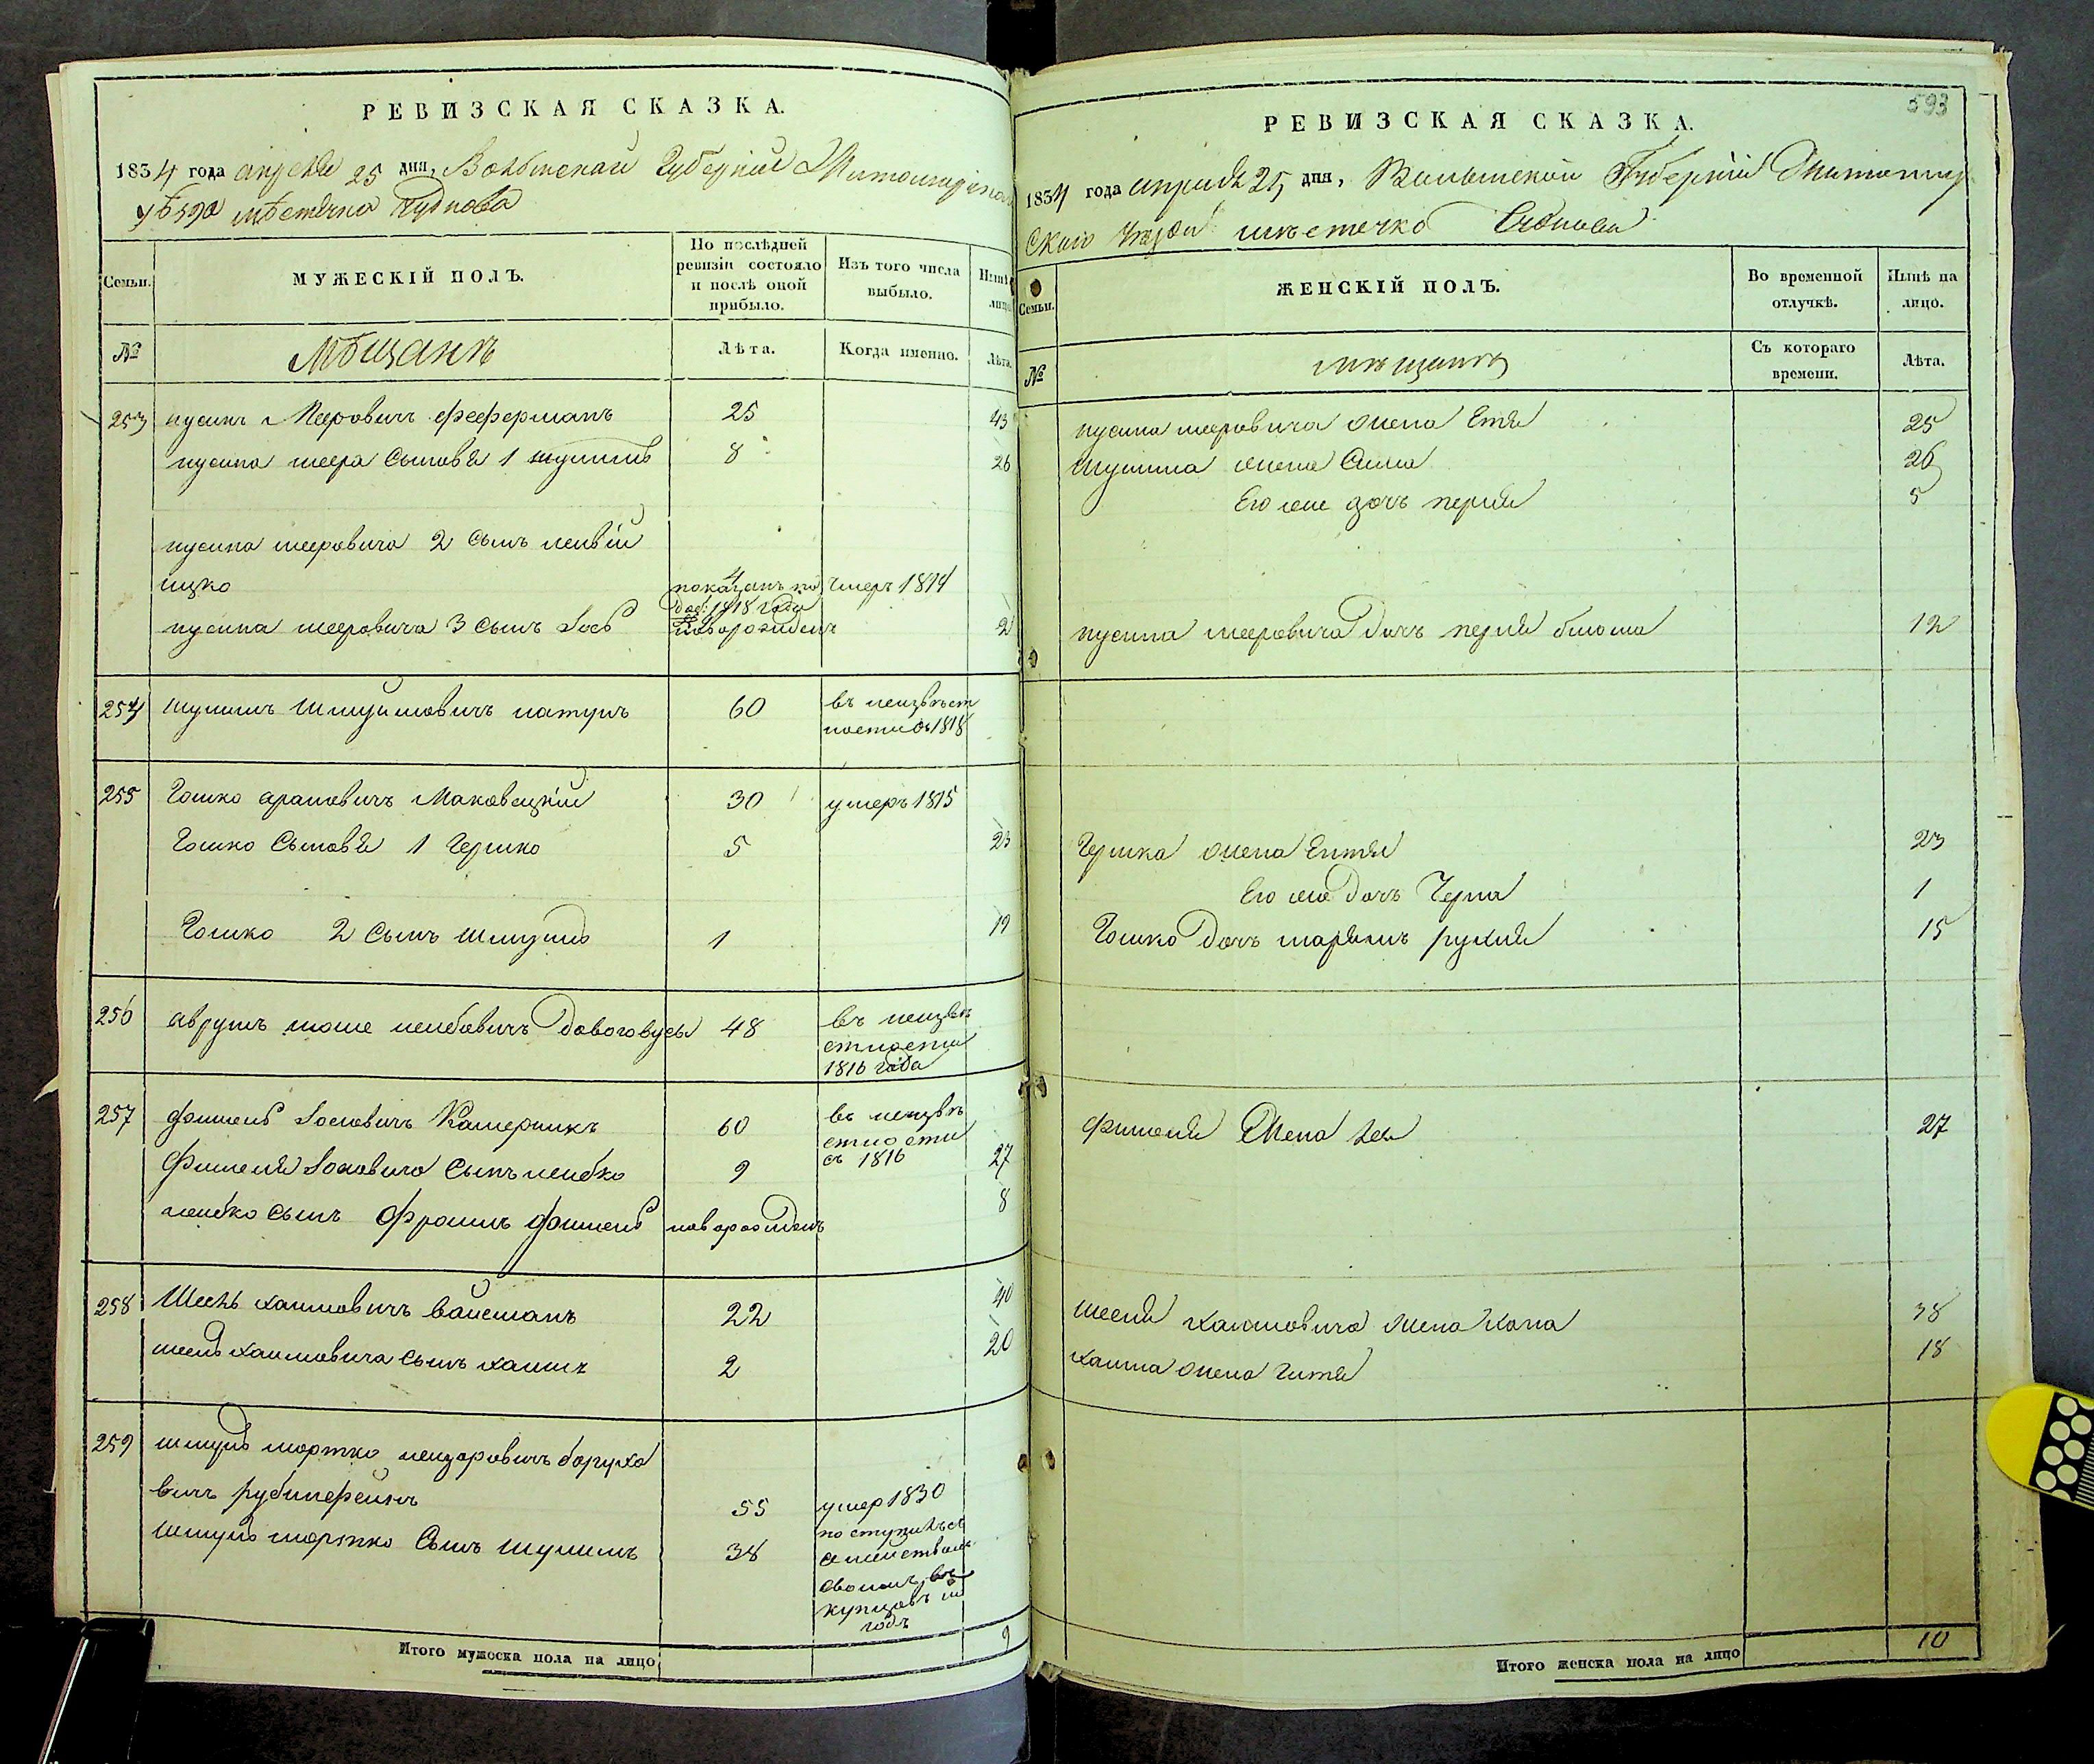 РЕВИЗСКАЯ СКАЗКА.
1834 года апреля 25 дня, Волынской Губернии Житомирска
уѣзда мѣстечка Чуднова
Семьи.
МУЖЕСКІЙ ПОЛЪ.
По послѣдней ревизіи состояло и послѣ оной прибыло.
Изъ того числа выбыло.
Нынѣ на лицо
№
Мѣщанъ
Лѣта.
Когда именно.
Лѣта.
253 нусинъ Мееровичъ феферманъ 25 43
нусина меера сыновья 1 шулимъ 8 26
нусина мееровича 2 сынъ
ицко 4 показанъ по умеръ 1814
доб: 1818 года
нусина мееровича 3 сынъ новорожденъ 2
254 шулимъ шмуйловичъ 60 въ неизвѣст
ности съ 1818
255 Гошко арановичъ Маковецкій 30 умеръ 1815
Гошко Сыновья 1 Гершко 5 23
Гошко 2 сынъ шмуль 1 19
256 аврумъ моше лейбовичъ 48 въ неизвѣ
стности
1816 года
257 фишель Іосиовичъ 60 въ неизвѣ
стности
съ 1816
Фишеля сынъ лейбко 9 27
лейбко сынъ Фроимъ фишель новорожденъ 8
258 Шеель хаимовичъ вайсманъ 22 40
шеель хаимовича сынъ хаимъ 2 20
259 шмуль мортко лейзаровичъ борухо
вичъ рубинфейнъ 55 умер 1830
шмуль мортко Сынъ шулимъ 38 поступилъ съ
семействомъ
своимъ въ
купцовъ
годъ
Итого мужеска пола на лицо 9
593
РЕВИЗСКАЯ СКАЗКА.
1834 года априля 25 дня, Волынской Губерніи Житомир
скаго уѣзда мѣстечко Чуднова
Семьи.
ЖЕНСКІЙ ПОЛЪ.
Во временной отлучкѣ.
Нынѣ на лицо.
№
мѣщанъ
Съ котораго времени.
Лѣта.
нусина мееровича жена Етя 25
шулима жена Сима 26
Его же дочъ перля 5
нусина мееровича дочъ перля блюма 12
Гершка жена Ентля 23
Его же дочъ Черна 1
Гошко дочъ марьямъ рухля 15
Фишеля жена 27
шееля хаимовича жена хана 38
хаима жена гитля 18
Итого женска пола на лицо 10